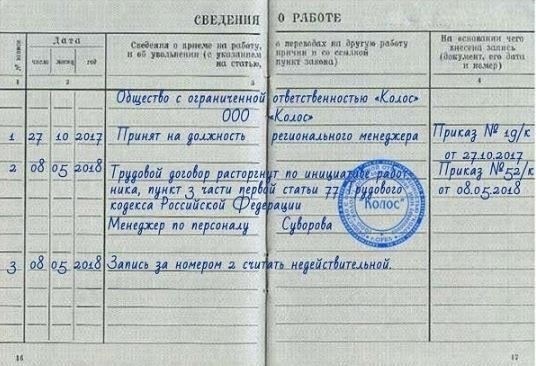 СВЕДЕНИЯ О РАБОТЕ
№ записи
Дата
число месяц год
Сведения о приеме на работу, о переводах на другую работу
и об увольнении (с указанием причин и со ссылкой
на статью, пункт закона)
На основании чего
внесена запись
(документ, его дата
и номер)
1 2 3 4
Общество с ограниченной ответственностью «Колос»
ООО «Колос»
1 27 10 2017 Принят на должность регионального менеджера Приказ № 19/к
от 27.10.2017
2 08 05 2018 Трудовой договор расторгнут по инициативе работ- Приказ № 52/к
ника, пункт 3 части первой статьи 77 Трудового от 08.05.2018
кодекса Российской Федерации
Менеджер по персоналу Суворова
"Колос"
3 08 05 2018 Запись за номером 2 считать недействительной.
16 17